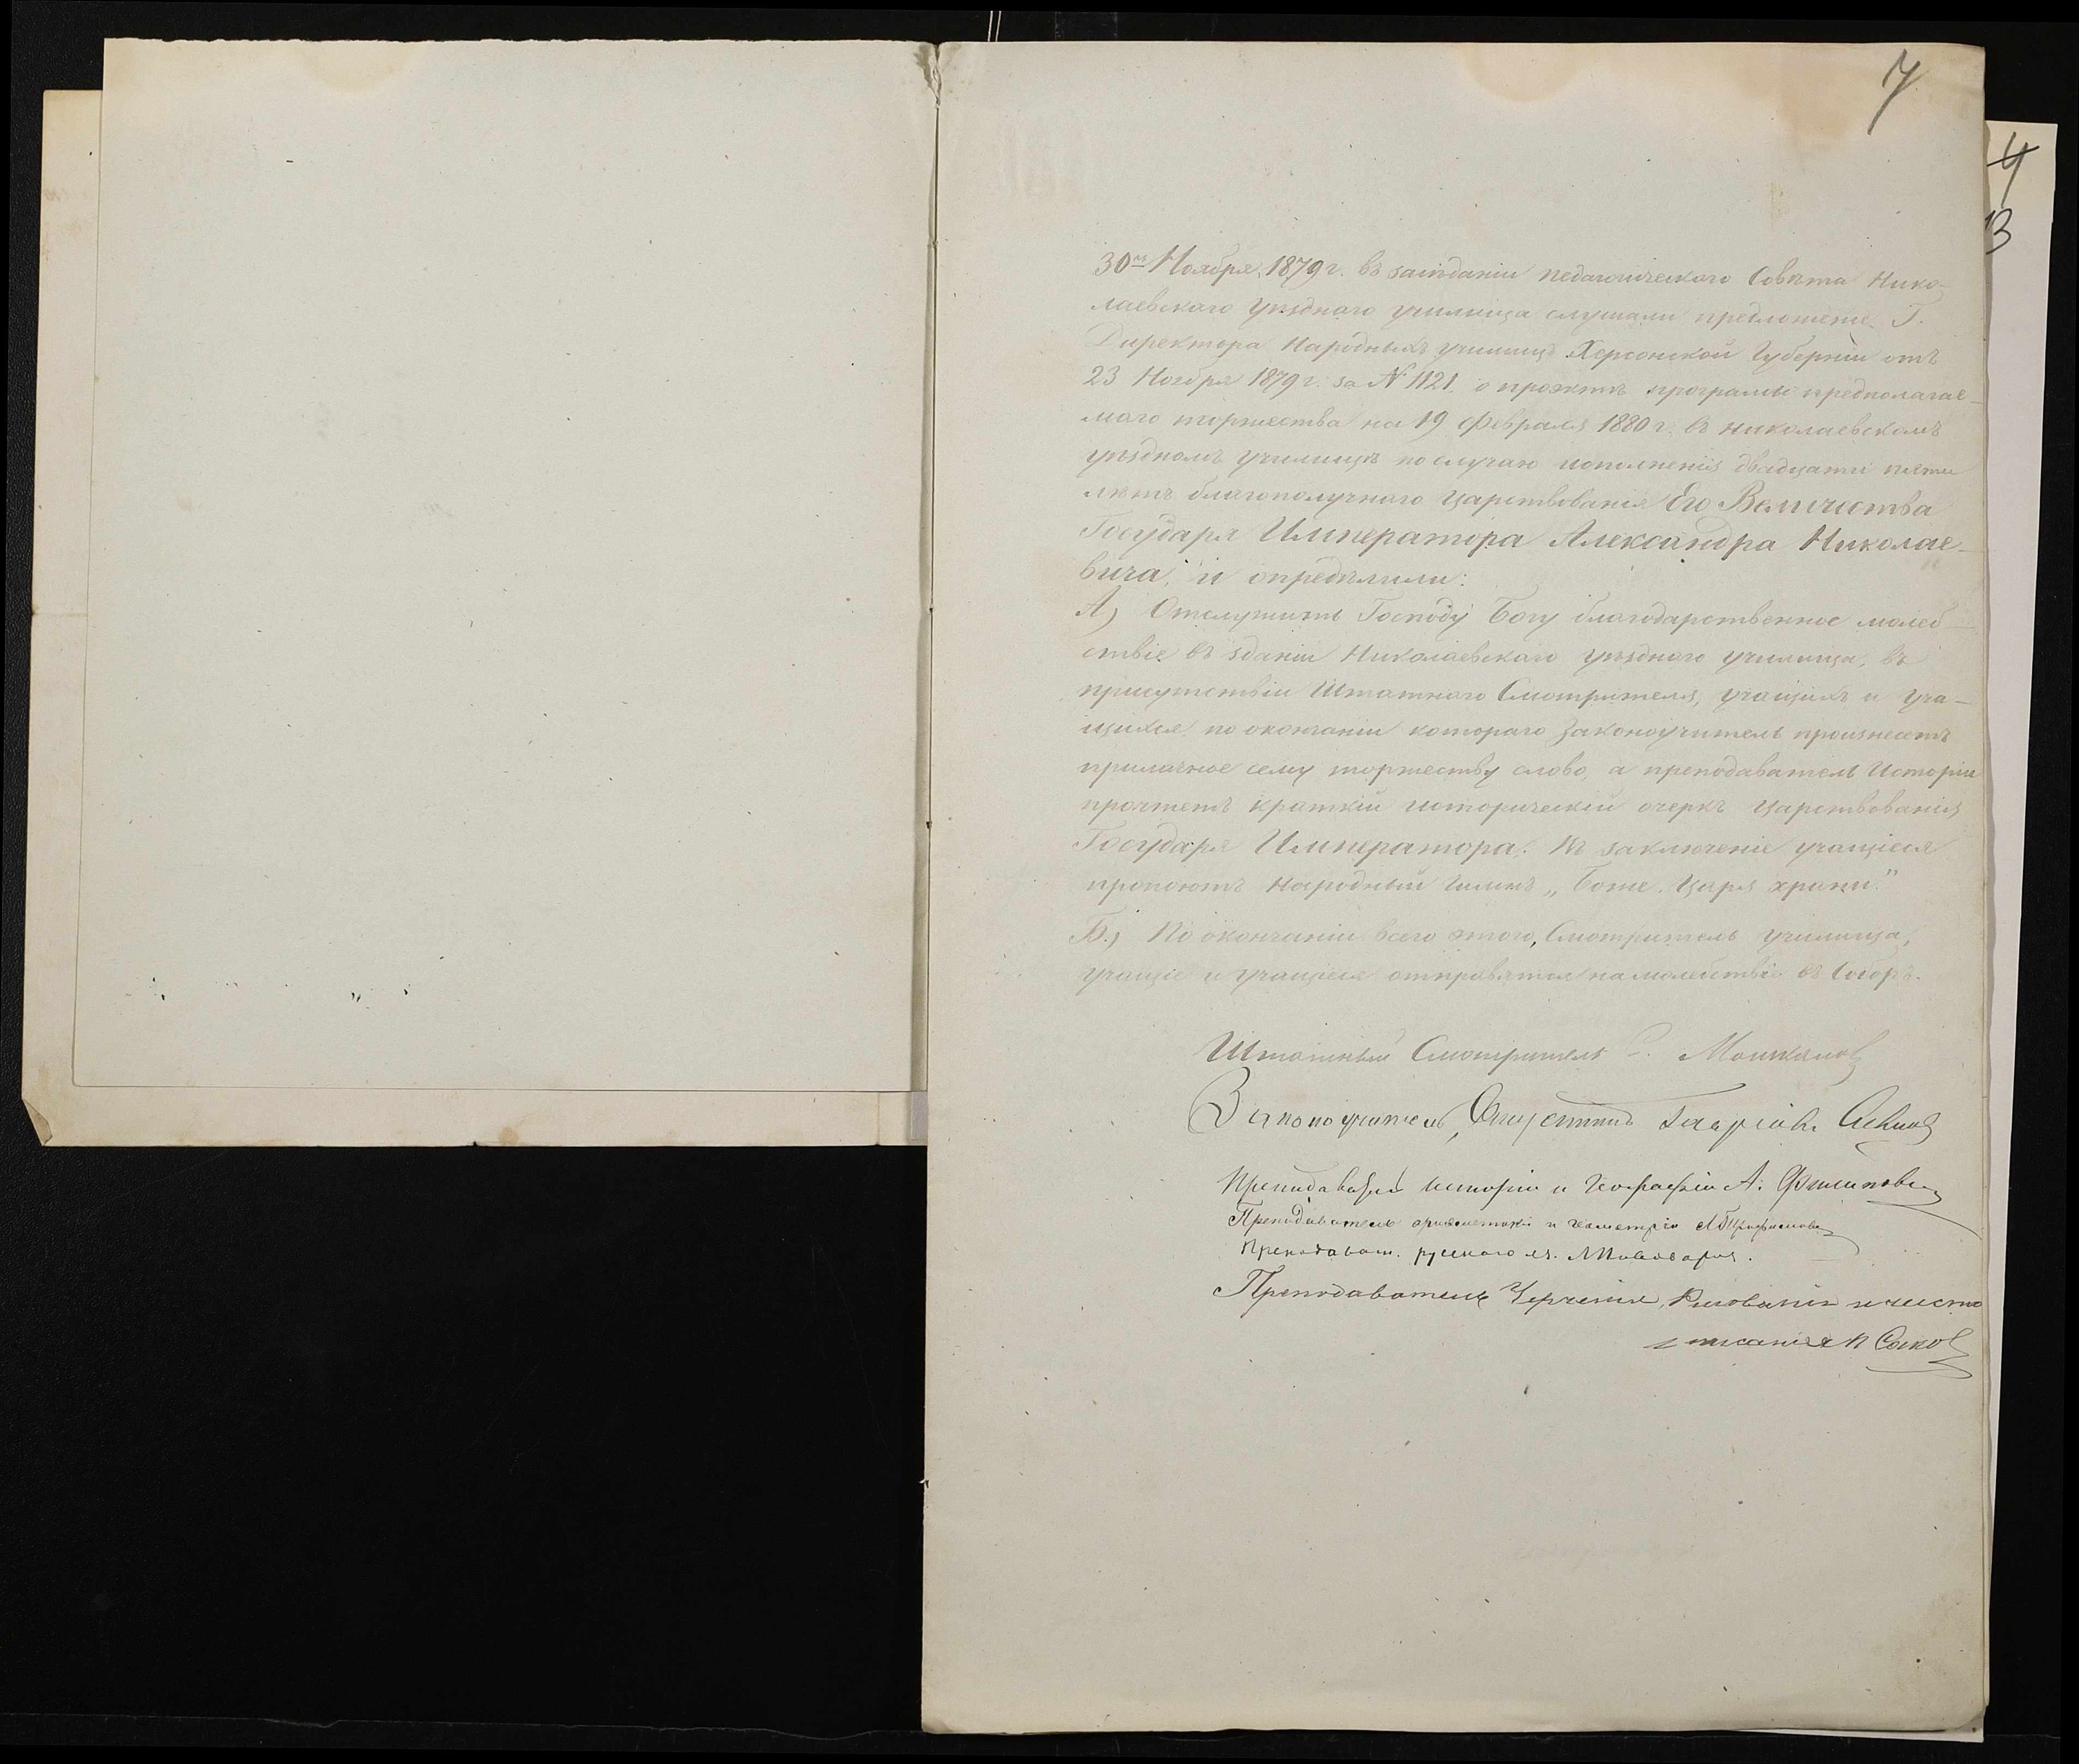 7
4
13
30го Ноября 1879 г. въ засѣданіи педагогическаго Совѣта Нико-
лаевскаго уѣзднаго училища слушали предложеніе Г.
Директора Народныхъ училищъ Херсонской Губерніи отъ
23 Ноября 1879 г. за № 1121 о проэктѣ програмы предполагае-
маго торжества на 19 Февраля 1880 г. въ Николаевскомъ
уѣздномъ училищѣ по случаю исполненія двадцати пяти
лѣтъ благополучнаго царствованія Его Величества
Государя Императора Александра Николае-
вича, и опредѣлили:
А) Отслужить Господу Богу благодарственное молеб-
ствіе въ зданіи Николаевскаго уѣзднаго училища, въ
присутствіи Штатнаго Смотрителя, учащихъ и уча-
щихся, по окончаніи котораго Законоучитель произнесетъ
приличное сему торжеству слово, а преподаватель Исторіи
прочтетъ краткій историческій очеркъ царствованія
Государя Императора. Въ заключеніе учащіеся
пропоютъ народный гимнъ „Боже, Царя храни."
Б.) По окончаніи всего этого, Смотритель училища,
учащіе и учащіеся отправятся на молебствіе въ Соборъ.
Штатный Смотритель
Законоучитель,
Преподаватель исторіи и географіи А. Филипов
Преподаватель ариѳметики и геометріи
Преподават. русскаго яз.
Преподаватель Черченія, Рисованія и чисто
писанія